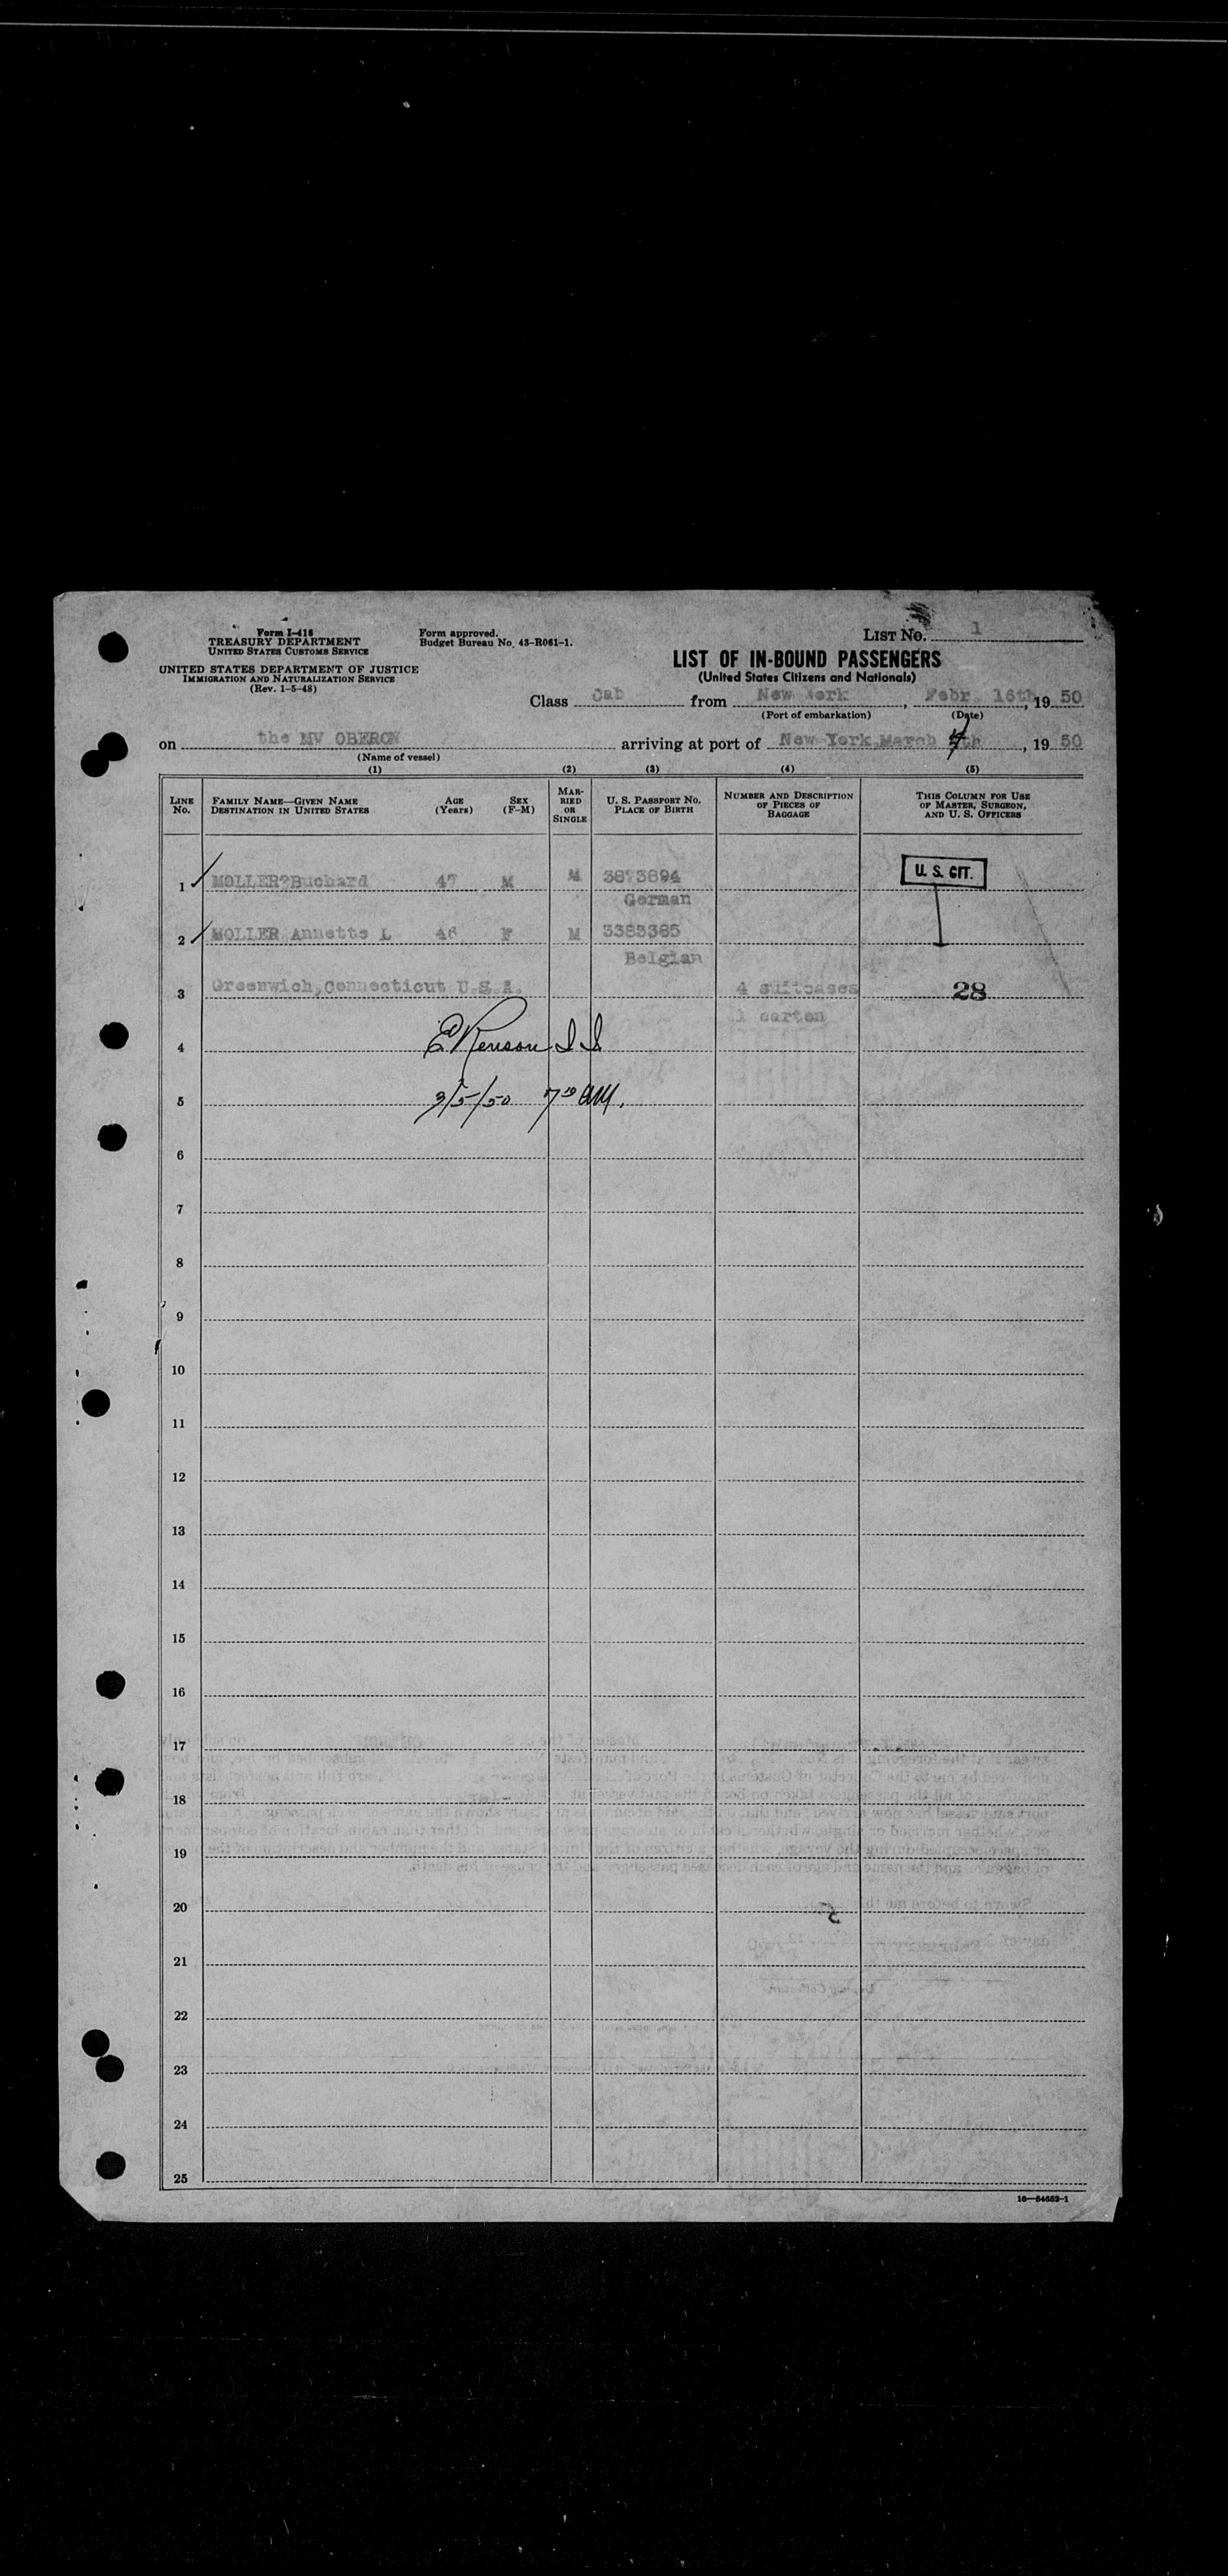 LIST NO. 1
Form I-416
TREASURY DEPARTMENT
UNITED STATES CUSTOMS SERVICE
UNITED STATES DEPARTMENT OF JUSTICE
IMMIGRATION AND NATURALIZATION SERVICE
(Rev. 1-5-48)
Form approved.
Budget Bureau No. 43-R061-1.
LIST OF IN-BOUND PASSENGERS
(United States Citizens and Nationals)
Class Cab from New York, Febr. 16th, 19 50
(Port of embarkation) (Date)
on the MV OBERON arriving at port of New York, March th, 19 50
(Name of vessel)
(1) (2) (3) (4) (5)
LINE NO. FAMILY NAME—GIVEN NAME DESTINATION IN UNITED STATES AGE (Years) SEX (F-M) MARRIED OR SINGLE U. S. PASSPORT NO. PLACE OF BIRTH NUMBER AND DESCRIPTION OF PIECES OF BAGGAGE THIS COLUMN FOR USE OF MASTER, SURGEON, AND U. S. OFFICERS
1 MOLLER?Buchard 47 M M 3873894 U. S. CIT.
German
2 MOLLER Annette L 46 F M 3383385
Belgian
3 Greenwich, Connecticut U.S.A. 4 suitcases 28
1 carton
4
5 3/5/50 AM.
6
7
8
9
10
11
12
13
14
15
16
17
18
19
20
21
22
23
24
25
16—54652-1